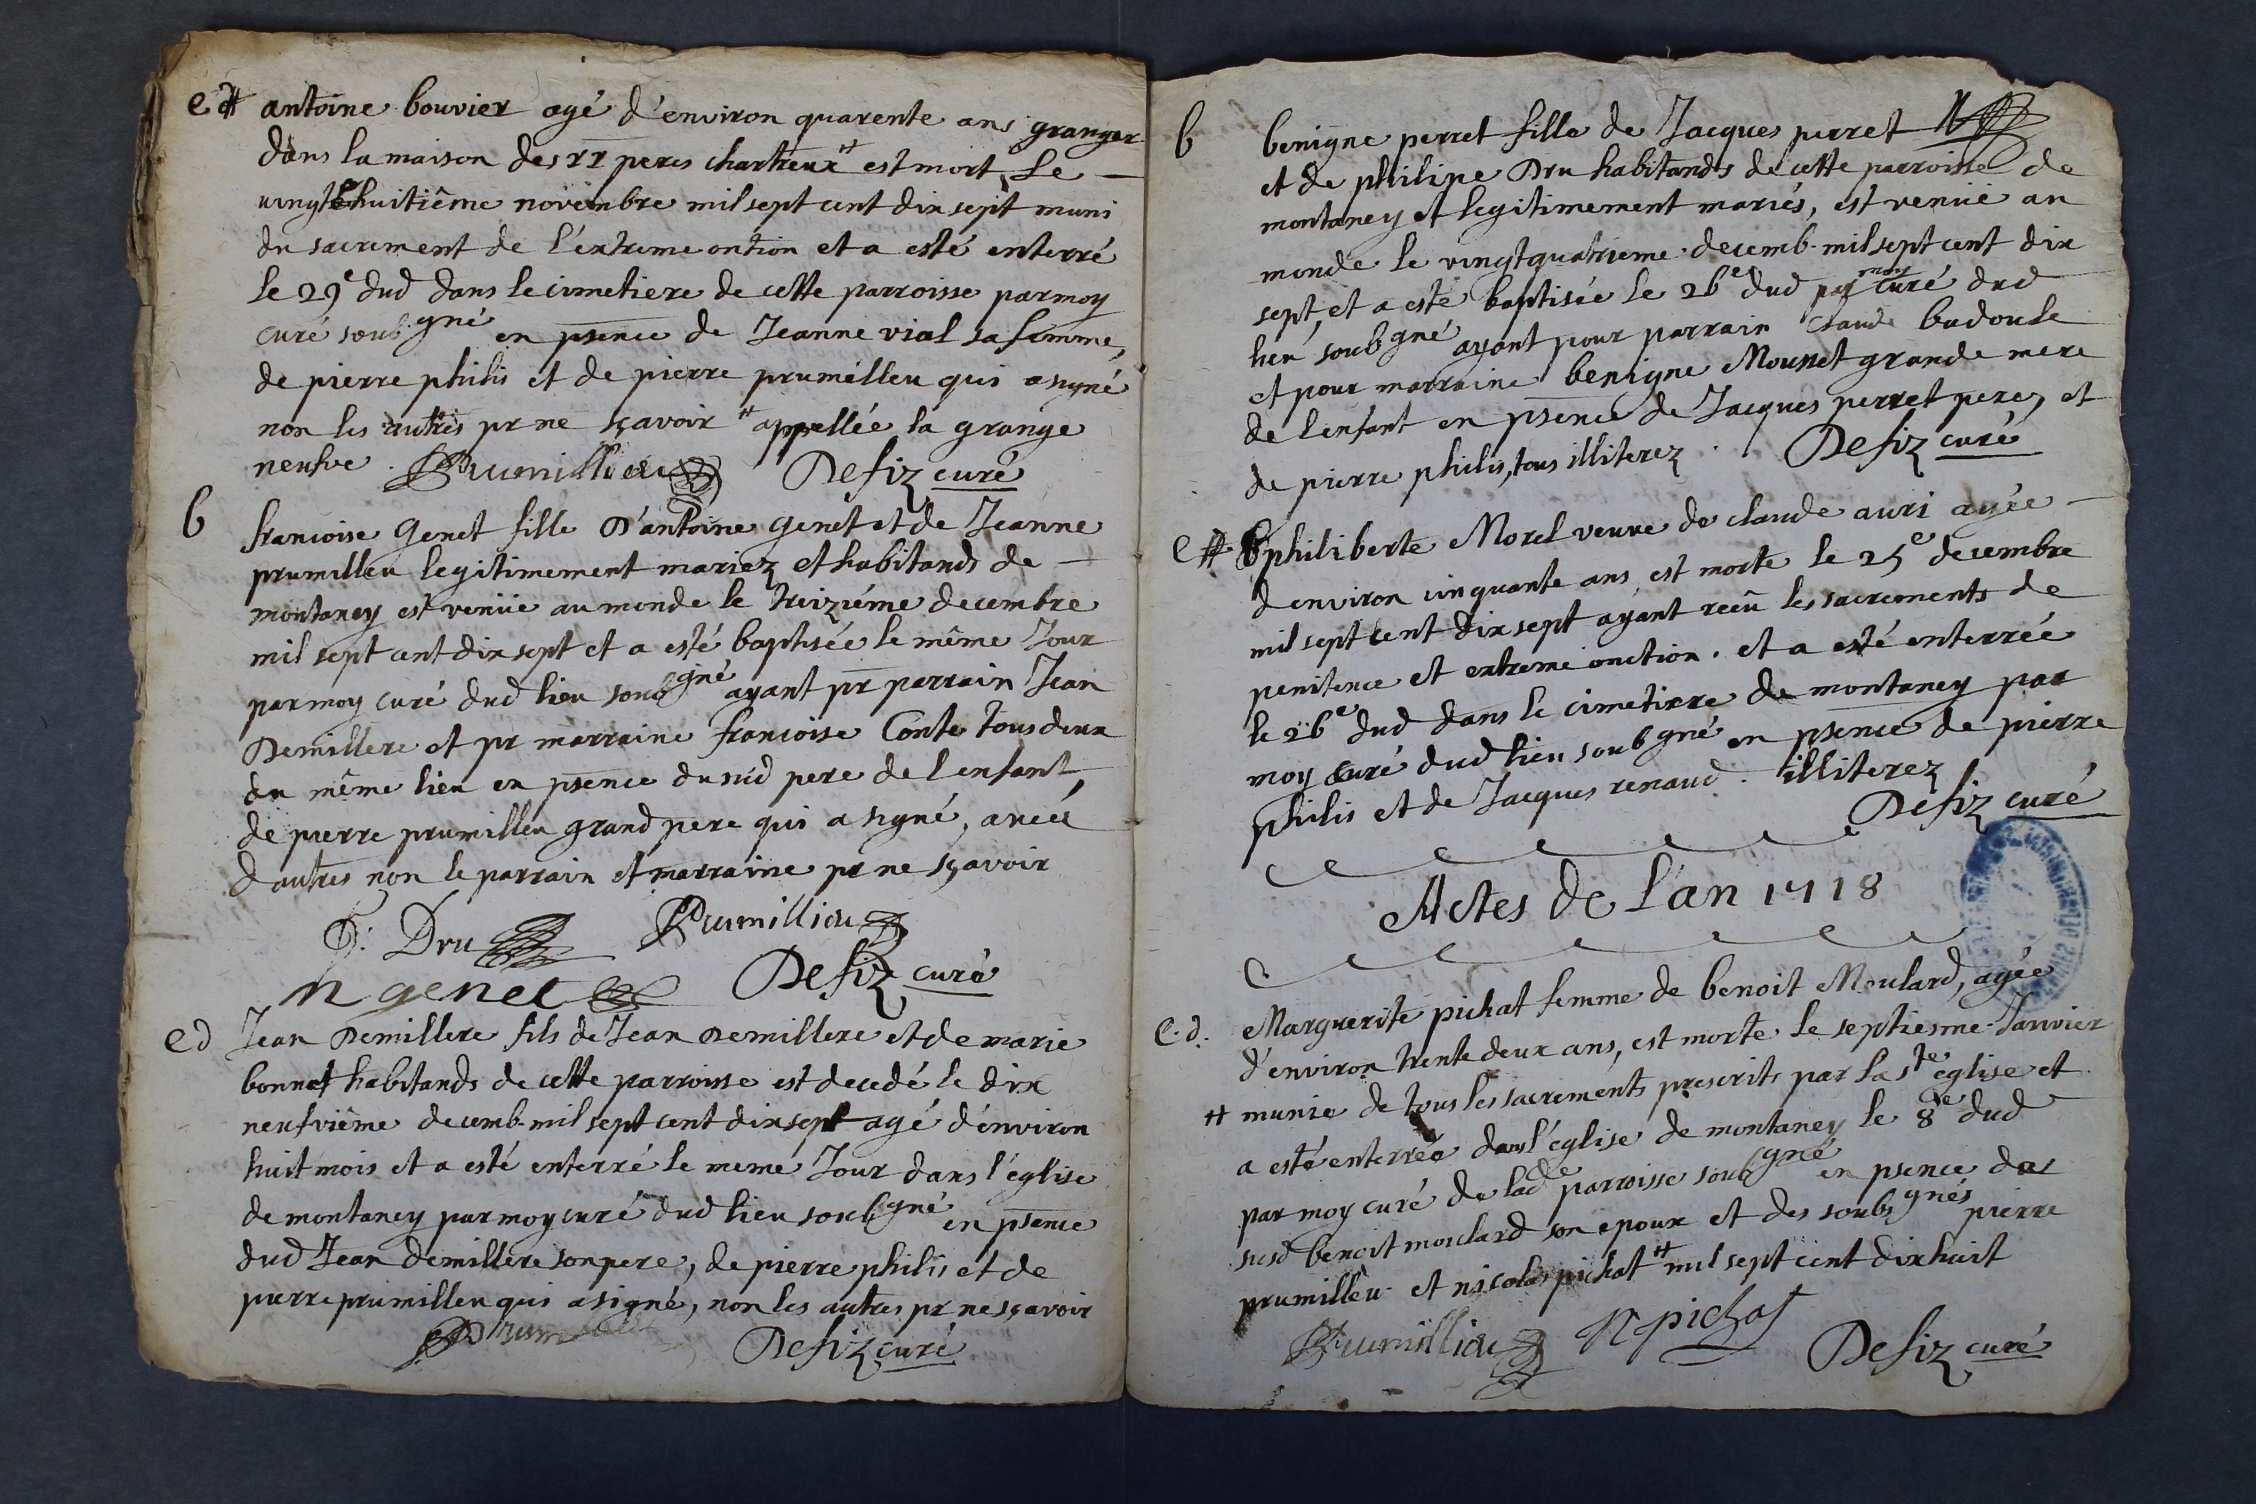 ed # antoine bouvier agé d'environ quarente ans granger
dans la maison des rr peres chartreux # est mort Le
vingt huitiême novembre mil sept cent dix sept muni
du sacrement de l'extreme ontion et a esté enterré
le 29e dud dans le cimetiere de cette parroisse par moy
curé soubgné en psence de Jeanne vial sa femme,
de pierre philis et de pierre prumilleu qui a signé
non les autres pr ne sçavoir # appellée la grange
neufve. Prumillieu Defiz curé
b francoise Genet fille D'antoine genet et de Jeanne
prumilleu legitimement mariez et habitands de
montaney est venüe au monde le treiziéme decembre
mil sept cent dix sept et a esté baptisée le même Jour
par moy curé dud lieu soubgné ayant pr parrain Jean
Demillere et pr marraine francoise Conte tous deux
du même lieu en psence dusud pere de l enfant,
de pierre prumilleu grand pere qui a signé, avec
d'autres non le parrain et marraine pr ne sçavoir
Dru Prumillieu
genet Defiz curé
ed Jean Demillere fils de Jean Demillere et de marie
bonnet habitands de cette parroisse est decedé le dix
neufviême decemb. mil sept cent dix sept agé d'environ
huit mois et a esté enterré le meme Jour dans l'église
de montaney par moy curé dud lieu soubgné en psence
dud Jean demillere son pere, de pierre philis et de
pierre prumilleu qui a signé, non les autres pr ne sçavoir
Defiz curé
b benigne perret fille de Jacques perret
et de philipe Dru habitands de cette parroisse de
montaney et legitimement mariés, est venüe au
monde le vingtquatrieme decemb. mil sept cent dix
sept, et a esté baptisée le 26e dud par moy curé dud
lieu soubgné ayant pour parrain Claude badoule
et pour marraine benigne Mounet grande mere
de l enfant en psence de Jacques perret pere, et
de pierre philis, tous illiterez. Defiz curé
e # philiberte Morel veuve de claude auri agée
d environ cinquante ans est morte le 25e decembre
mil sept cent dix sept ayant recu les sacrements de
penitence et extreme onction. et a esté enterrée
le 26e dud dans le cimetierre de montaney par
moy curé dud lieu soubgné en psence de pierre
philis et de Jacques renaud. illiterez
Defiz curé
Actes de l'an 1718
e.d. Marguerite pichat femme de benoit Moulard, agée
d'environ trente deux ans, est morte le septiesme Janvier
# munie de tous les sacrements prescrits par la ste eglise et
a esté enterrée dans l'eglise de montaney le 8e dud
par moy curé de lade parroisse soubgné en psence du
susd benoit moulard son epoux et des soubsgnés pierre
prumilleu et nicolas pichat # mil sept cent dix huit
Prumillieu N pichat Defiz curé